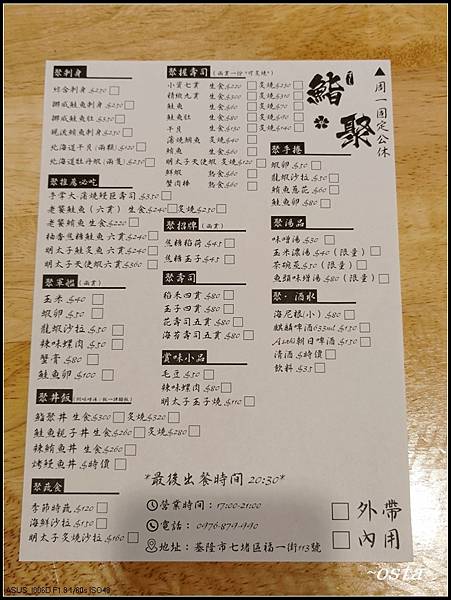 ▲周一固定公休
鮨聚
聚刺身
綜合刺身$250
挪威鮭魚刺身$230
挪威鮭魚肚$230
親流鮪魚刺身$230
北海道干貝(兩顆)$120
北海道牡丹蝦(兩隻)$250
聚推薦必吃
手掌大-蒲燒鰻巨壽司$350
老饕鮭魚(六貫) 生食$240 炙燒$250
老饕鮪魚 生食$220
柚香焦糖鮭魚六貫$240
明太子鮭炙魚六貫$240
明太子天使蝦六貫$360
聚軍艦(兩貫)
玉米$40
蝦卵$50
龍蝦沙拉$50
辣味螺肉$50
蟹膏$80
鮭魚卵$100
聚丼飯
鮨聚丼 生食$300 炙燒$320
鮭魚親子丼 生食$260 炙燒$280
辣鮪魚丼 生食$260
烤鰻魚丼 $時價
聚蔬食
季節時蔬$120
海鮮沙拉$150
明太子炙燒沙拉$160
聚握壽司(兩貫一份"可炙燒")
小資七貫 生食$220 炙燒$250
精緻九貫 生食$300 炙燒$310
鮭魚 生食$60 炙燒$70
鮭魚肚 生食$80 炙燒$90
干貝 生食$130 炙燒$140
蒲燒鯛魚 炙燒$60
鮪魚 生食$60
明太子天使蝦 炙燒$120
鮮蝦 熟食$60
蟹肉棒 熟食$60
聚招牌(兩貫)
焦糖稻荷 $45
焦糖玉子 $45
聚壽司
稻禾四貫 $80
玉子四貫 $80
花壽司五貫 $80
海苔壽司五貫 $80
賞味小品
毛豆 $50
辣味螺肉 $80
明太子玉子燒 $110
聚手捲
蝦卵 $50
龍蝦沙拉 $50
鮪魚蔥花 $60
鮭魚卵 $80
聚湯品
味噌湯 $30
玉米濃湯 $40(限量)
茶碗蒸 $50(限量)
魚頭味增湯 $80(限量)
聚·酒水
海尼根(小) $80
麒麟啤酒633ml $150
Asahi朝日啤酒 $150
清酒 $時價
飲料 $35
*最後出餐時間 20:30*
營業時間:17:00-21:00
電話: 0976-879-990
地址:基隆市七堵區福一街113號
外帶
內用
~osta
ASUS_I006D F1.8 1/60s ISO48